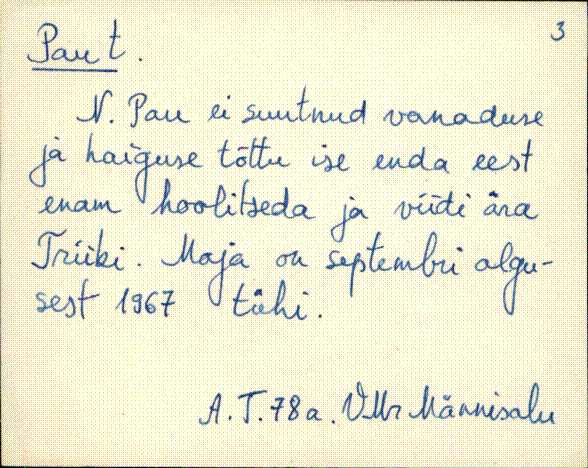 3
Pau t.
N. Pau ei suutnud vanaduse
ja haiguse tõttu ise enda eest
enam hoolitseda ja viidi ära
Triiki. Maja on septembri algu-
sest 1967 tühi.
A. T. 78 a. VMr Männisalu